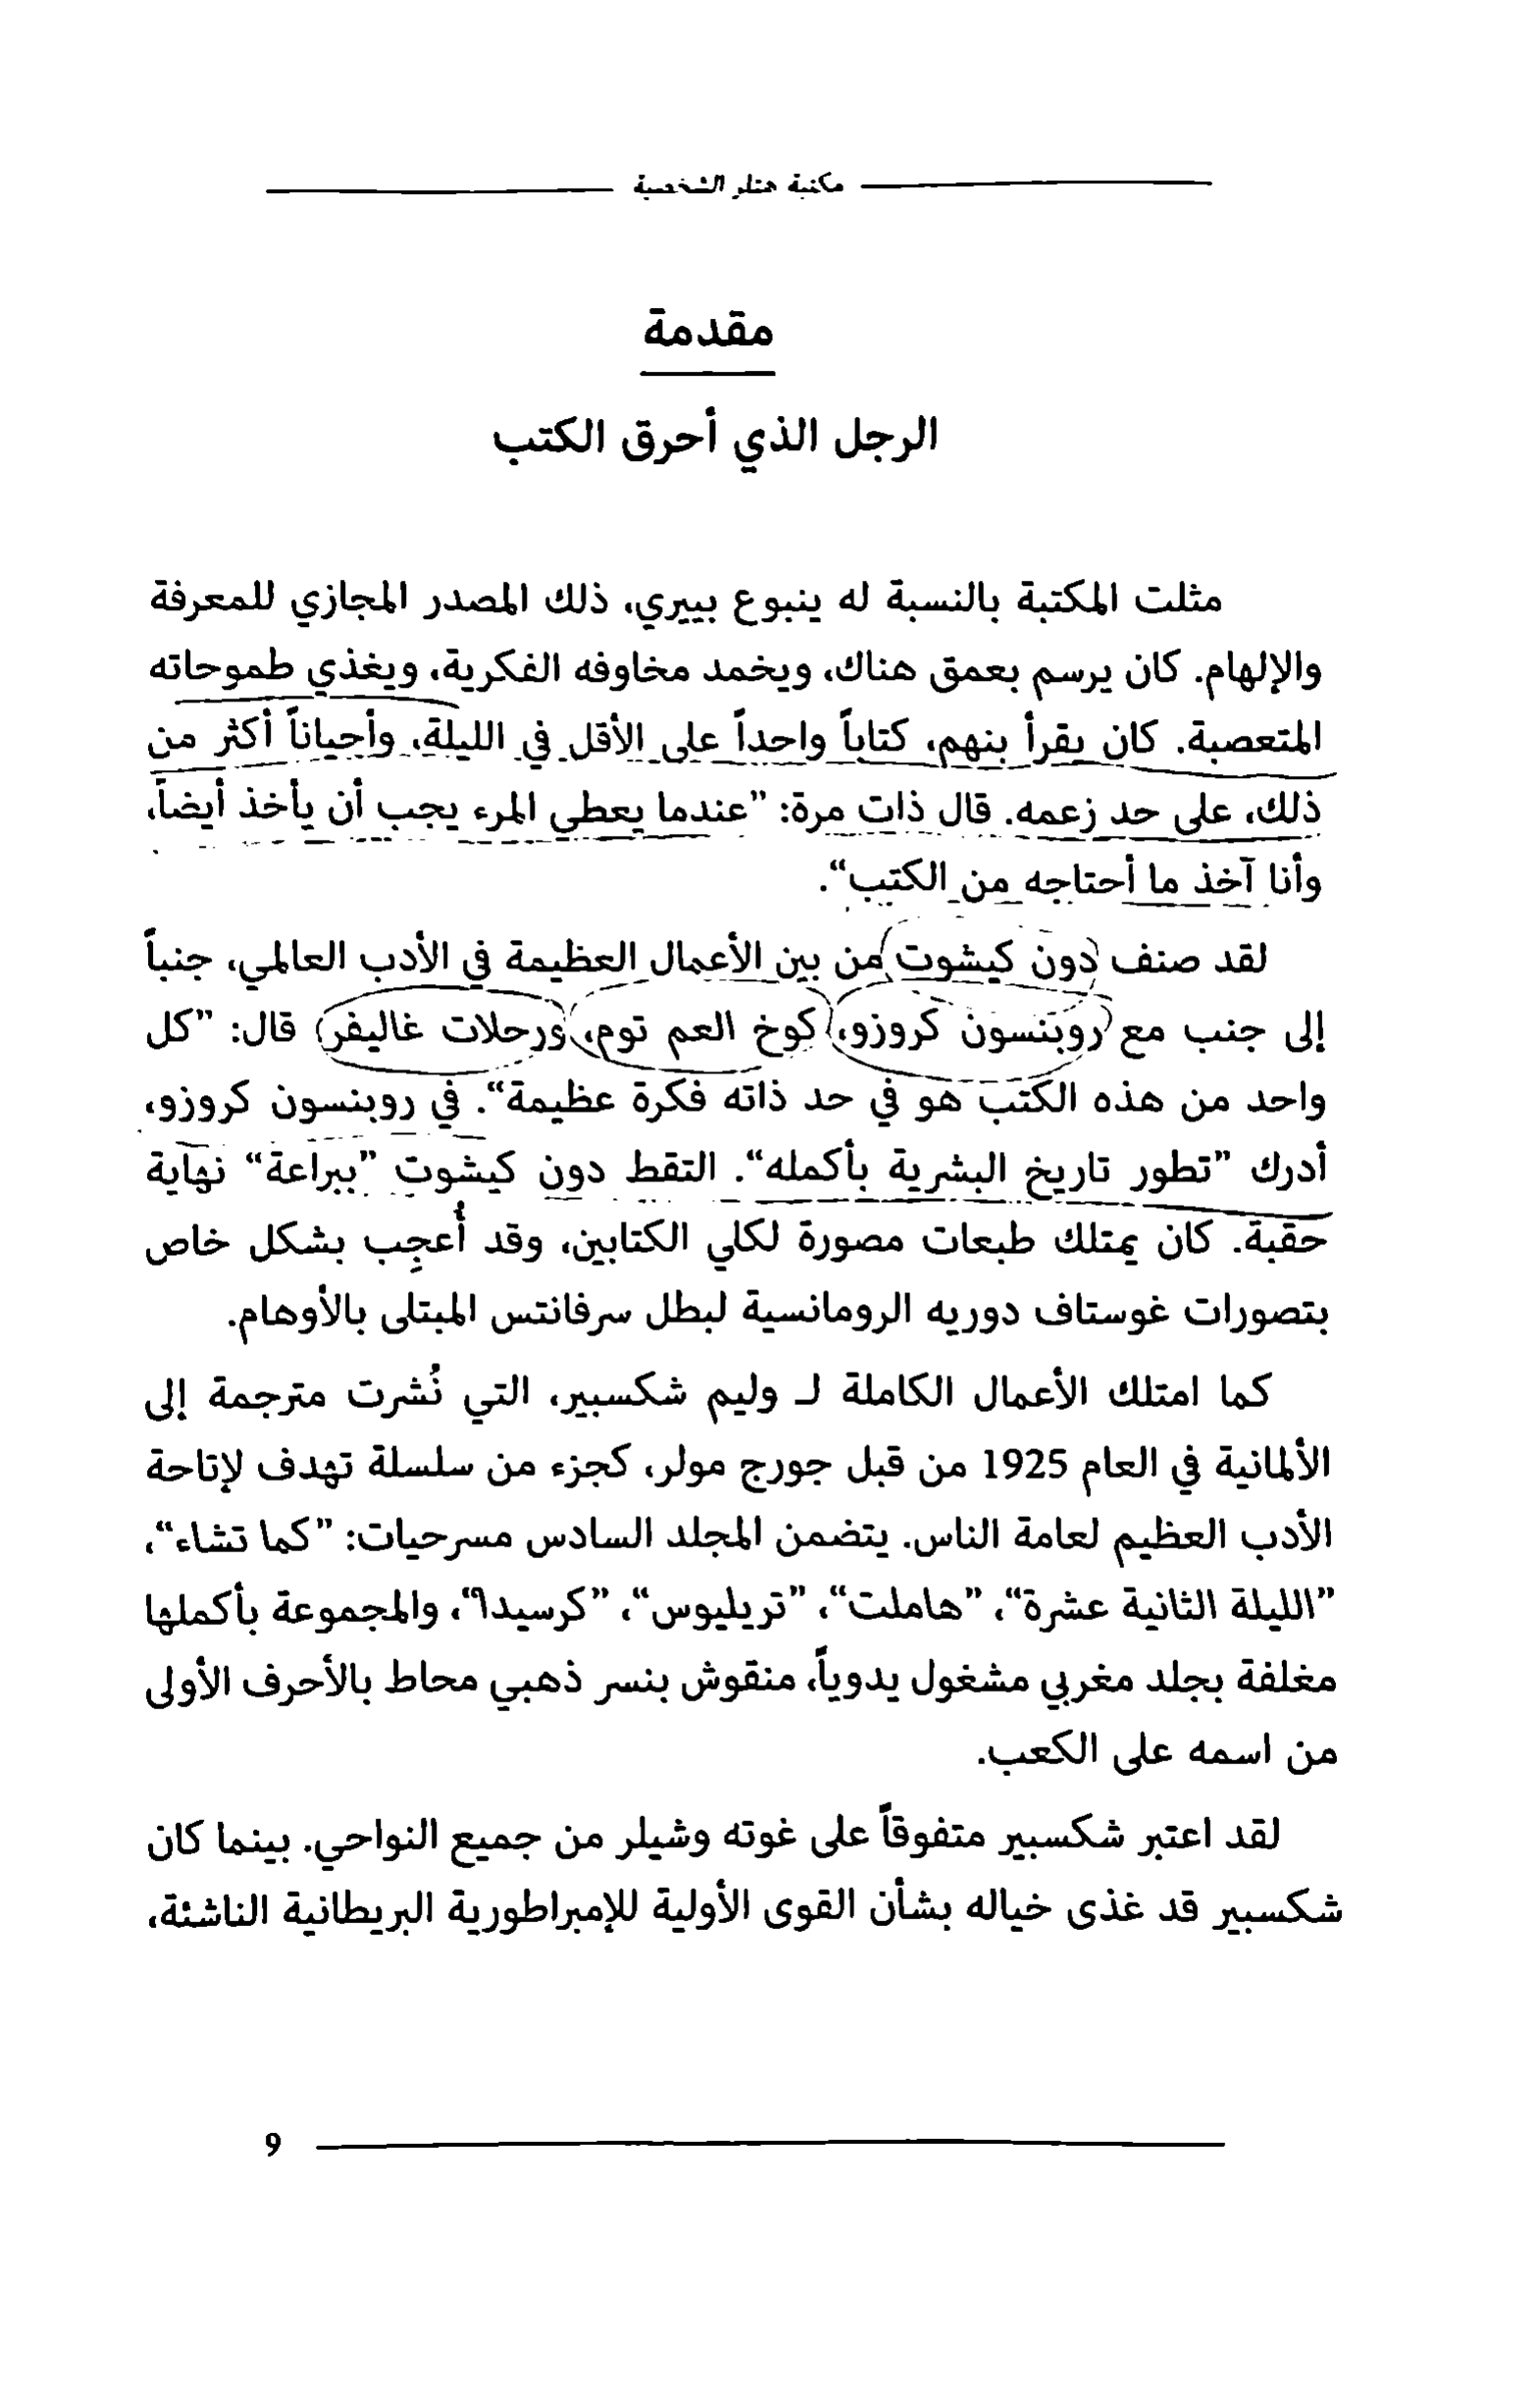 مكتبة هتلر الشخصية
مقدمة
الرجل الذي أحرق الكتب
مثلت المكتبة بالنسبة له ينبوع بييري، ذلك المصدر المجازي للمعرفة
والإلهام. كان يرسم بعمق هناك، ويخمد مخاوفه الفكرية، ويغذي طموحاته
المتعصبة. كان يقرأ بنهم، كتاباً واحداً على الأقل في الليلة، وأحياناً أكثر من
ذلك، على حد زعمه. قال ذات مرة: ”عندما يعطي المرء يجب أن يأخذ أيضاً،
وأنا آخذ ما أحتاجه من الكتب“.
لقد صنف دون كيشوت من بين الأعمال العظيمة في الأدب العالمي، جنباً
إلى جنب مع روبنسون كروزو، كوخ العم توم، ورحلات غاليفر قال: ”كل
واحد من هذه الكتب هو في حد ذاته فكرة عظيمة“. في روبنسون كروزو،
أدرك ”تطور تاريخ البشرية بأكمله“. التقط دون كيشوت ”ببراعة“ نهاية
حقبة. كان يمتلك طبعات مصورة لكلي الكتابين، وقد أُعجِب بشكل خاص
بتصورات غوستاف دوريه الرومانسية لبطل سرفانتس المبتلى بالأوهام.
كما امتلك الأعمال الكاملة لـ وليم شكسبير، التي نُشرت مترجمة إلى
الألمانية في العام 1925 من قبل جورج مولر، كجزء من سلسلة تهدف لإتاحة
الأدب العظيم لعامة الناس. يتضمن المجلد السادس مسرحيات: ”كما تشاء“،
”الليلة الثانية عشرة“، ”هاملت“، ”تريليوس“، ”كرسيدا“، والمجموعة بأكملها
مغلفة بجلد مغربي مشغول يدوياً، منقوش بنسر ذهبي محاط بالأحرف الأولى
من اسمه على الكعب.
لقد اعتبر شكسبير متفوقاً على غوته وشيلر من جميع النواحي. بينما كان
شكسبير قد غذى خياله بشأن القوى الأولية للإمبراطورية البريطانية الناشئة،
9